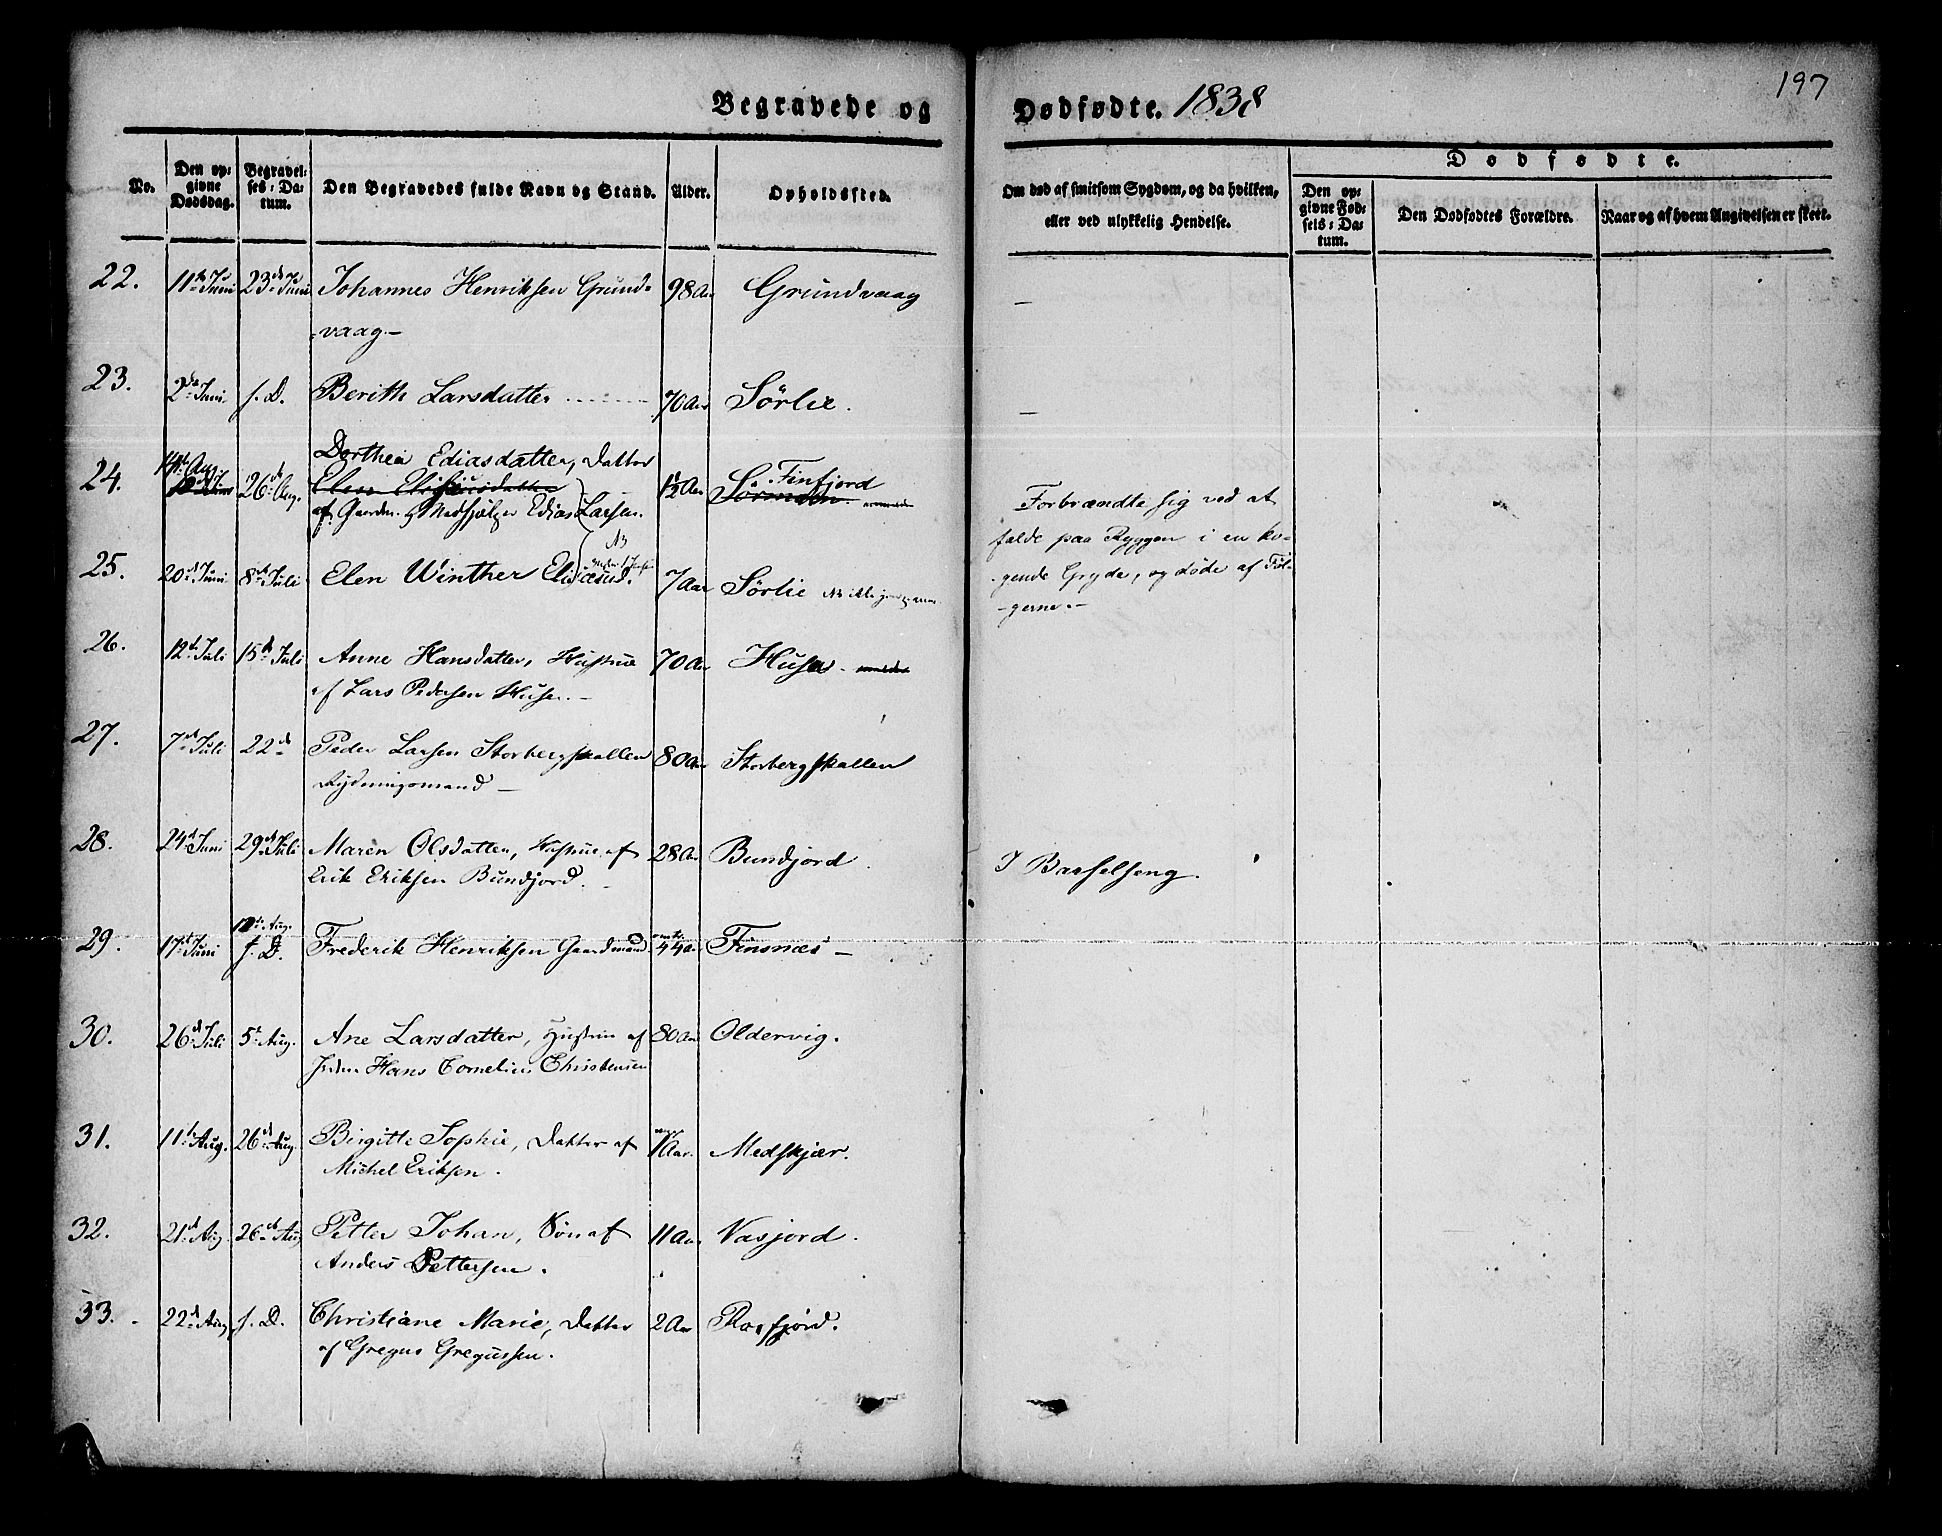 Begravede og Dødfødte. 1838
197
No. Den opgivne Dødsdag. Begravelses-Datum. Den Begravedes fulde Navn og Stand. Alder. Opholdssted. Om død af smitsom Sygdom, og da hvilken, eller ved ulykkelig Hendelse. Dødfødte. Den opgivne Fødsels-Datum. Den Dødfødtes Forældre. Naar og af hvem Angivelsen er skeet.
22. 11te Juni 23de Juni Johannes Henriksen Grund- 98 Aar Grundvaag —
vaag.—
23. 2den Juni s. D. Berith Larsdatter 70 Aar Sørlie. —
Dorthea Ediasdatter, Datter
24. 14de Aug 26de Aug. Elen Elisæusdatter 1½ Aar S. Finfjord
af Gaardm. & Medhjælper Edias Larsen.
Forbrændte sig ved at
falde paa Ryggen i en ko-
gende Gryde, og døde af Føl-
gerne.—
25. 20de Juni 8de Juli Elen Winther Elisæusd. 7 Aar Sørlie
26. 12te Juli 15de Juli Anne Hansdatter, Hustrue 70 Aar Husø.
af Lars Pedersen Husø.—
27. 7de Juli 22de Peder Larsen Storbergskallen 80 Aar Storbergskallen
Rydningsmand —
28. 24de Juni 29de Juli Maren Olsdatter, Hustrue af 28 Aar Bundjord I Barselseng.
Erik Eriksen Bundjord.—
12te Aug.
29. 17de Juni s. D. Frederik Henriksen Gaardmand omtr. 44 Aar Finsnæs —
30. 26de Juli 5te Aug. Ane Larsdatter, Hustrue af 80 Aar Oldervig.
Hans Cornelius Christensen
31. 11te Aug. 26de Aug. Birgitte Sophie, Datter af 1 Aar. Medskjær.
Michel Eriksen.
32. 21de Aug. 26de Aug Petter Johan, Søn af 11 Aar Vasjord.
Anders Pettersen.
33. 22de Aug s. D. Christiane Marie, Datter 2 Aar Rosfjord.
af Gregus Gregussen.